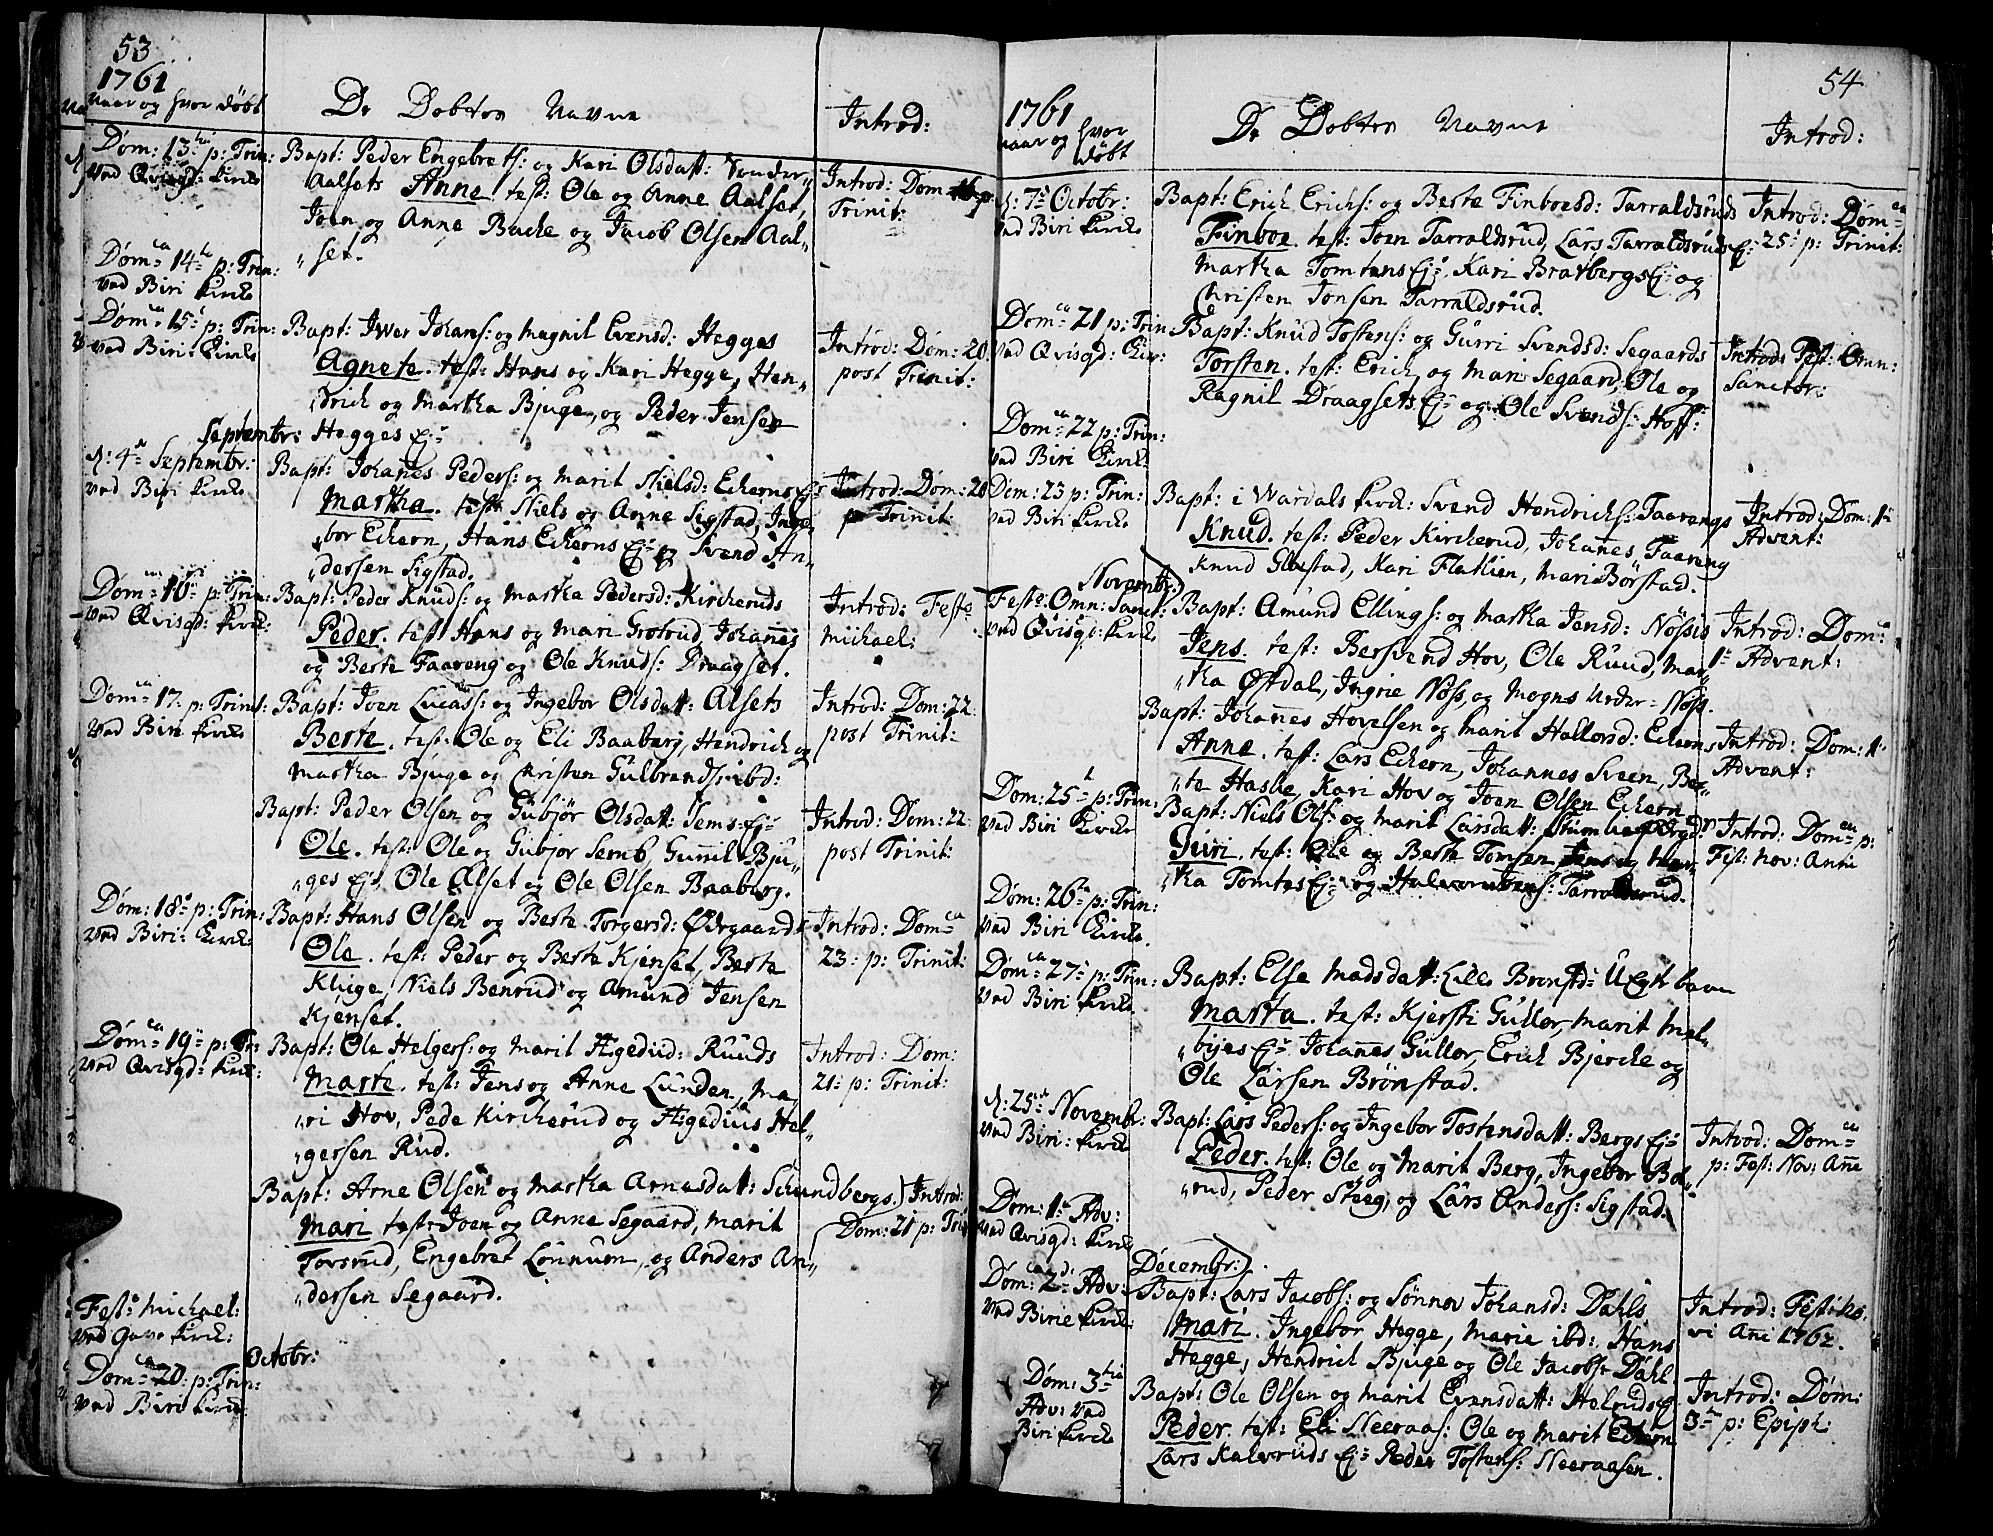 53
1761
Naar og hvor døbt
De Døbtes Navne
Introd:
Dom: 13 p: Trin:
Ved Qvisgd: Kirke
Bapt: Peder Engebrets: og Kari Olsdatt: Sønder
Aalsets Anne. test: Ole og Anne Aalset,
Joen og Anne Backe og Jacob Olsen Aal„
„set.
Introd: Dom: 16 p:
Trinit:
Domca 14 p: Trin:
Ved Biri Kirke
Domca 15 p: Trin:
Ved Biri: Kirke
Bapt: Iwer Johans: og Magnil Evensd: Hegges
Agnete. test: Hans og Kari Hegge, Hen„
„drich og Martha Bjuge, og Peder Jensen
Hegges Ej:
Introd: Dom: 20
post Trinit:
Septembr:
d: 4 Septembr:
Ved Biri Kirke
Bapt: Johanes Peders: og Marit Nielsd: Eckerns Ej:
Martha. test: Niels og Anne Sigstad, Inge„
„bor Eckern, Hans Eckerns Ej: og Svend An„
„dersen Sigstad.
Introd: Dom: 20
p: Trinit:
Domca 16 p: Trin:
Ved Qvisgd: Kirke:
Bapt: Peder Knuds: og Martha Pedersd: Kirkeruds
Peder. test: Hans og Mari Grøtrud, Johannes
og Berte Faareng og Ole Knuds: Draagset.
Introd: Festo
Michael:
Domca 17. p: Trinit:
Ved Biri Kirke
Bapt: Joen Lucass: og Ingebor Olsdatt: Alsets
Berte. test: Ole og Eli Baaberg, Hendrich og
Martha Bjuge og Christen Gulbrands: ibd:
Introd: Dom: 22
post Trinit:
Bapt: Peder Olsen og Gubjør Olsdatt: Sems: Ej:
Ole. test: Ole og Gubjor Semb, Gunnil Bju„
„ges Ej: Ole Alset og Ole Olsen Baaberg.
Introd: Dom: 22
post Trinit:
Dom: 18 p: Trin:
Ved Biri: Kirke:
Bapt: Hans Olsen og Berte Torgersd: Ødegaards
Ole. test: Peder og Berte Kjenset, Berte
Kluge, Niels Benrud og Amund Jensen
Kjenset.
Introd: Domca
23: p: Trinit:
Domca 19 p: Tr:
Ved Qvisgd: Kirk:
Bapt: Ole Helgers: og Marit Hgedud: Ruuds
Marte. test: Jens og Anne Lunden, Ma„
„ri Hov, Pede Kirkerud og Hgedius Hel„
„gersen Rud.
Introd: Dom:
21: p: Trinit:
Bapt: Arne Olsen og Martha Arnesdatt: Schundbergs.
Mari test: Joen og Anne Segaard, Marit
Torsrud, Engebret Lønnum, og Anders An„
„dersen Segaard.
Introd:
Dom: 21 p: Tri
Festo Michael:
Ved Kirke:
Octobr:
Domca 20: p: Trin:
Ved Biri Kirke:
54
1761
Naar og hvor
døbt
De Døbtes Navne
Introd:
d: 7 Octobr:
Ved Biri Kirke
Bapt: Erich Erichs: og Berte Finboesd: Tarraldsruds
Finboe. test: Joen Tarraldsrud, Lars Tarraldsruds Ej:
Martha Tomtens Ej: Kari Bratbergs Ej: og
Christen Jonsen Tarraldsrud.
Introd: Domca
25 p: Trinit:
Domca 21 p: Trin
Ved Qvisgd: Kir:
Bapt: Knud Tostens: og Gurri Svendsd: Segaards
Torsten. test: Erich og Mari Segaard, Ole og
Ragnil Draagsets Ej: og Ole Svends: Hoff:
Introd: Fest: Omn:
Sanctor:
Domca 22 p: Trin:
Ved Biri Kirke:
Dom: 23 p: Trin:
Ved Biri Kirke
Bapt: i Wardals Kirk: Svend Hendrichs: Faarengs
Knud. test: Peder Kirckerud, Johannes Faareng
Knud Glæstad, Kari Flatlien, Mari Børstad.
Introd: Dom: 1
Advent:
Novembr:
Festo. Omn: Sanct:
Ved Qvisgd: Kirke
Bapt: Amund Ellings: og Martha Jensd: Nøssis
Jens. test: Bersvend Hov, Ole Ruud, Mar„
„tha Østdal, Ingrie Nøss, og Mogns Neder=Nøss.
Introd: Domca
1 Advent:
Bapt: Johannes Hovelsen og Marit Hallorsd: Eckerns
Anne. test: Lars Eckern, Johannes Sveen, Ber„
„te Haslie, Kari Hov og Joen Olsen Eckern
Introd: Dom: 1
Advent:
Dom: 25 p: Trin:
Ved Biri Kirke
Bapt: Niels Ols: og Marit Larsdatt:
Guri. test: Ole og Berte Tomten Jens og Mar„
„tha Tomtes Ej: og Tarraldsrud.
Introd: Domca p:
Fest: Nov: Anni
Dom: 26 p: Trin:
Ved Biri Kirke.
Domca 27 p: Trin:
Ved Biri Kirke
Bapt: Else Madsdatt: Lille Brønstd: Uægte barn
Marta. test: Kjersti Gullør, Marit Mæl„
„byes Ej: Johanes Gullør, Erich Bjercke og
Ole Larsen Brønstad.
d: 25 Novembr:
Ved Biri: Kirke
Bapt: Lars Peders: og Ingebor Tostensdatt: Bergs Ej:
Peder. test: Ole og Marit Berg, Ingebor Bø„
„rud, Peder Steeg, og Lars Anders: Sigstad.
Introd: Domca
p: Fest: Nov: Ane
Dom: 1 Adv:
Ved Qvisgd: Kirke
Decembr:
Dom: 2 Adv:
Ved Birie Kirke:
Bapt: Lars Jacobs: og Sønnov Johansd: Dahls
Mari. Ingebor Hegge, Marie ibd: Hans
Hegge, Hendrich Bjuge og Ole Jacobs: Dahl
Introd: Festo No.
vi Ani 1762.
Dom: 3
Adv: Ved
Biri Kirke
Bapt: Ole Olsen og Marit Evensdatt:
Peder. test: Eli Neeraas: Ole og Marit Eckern
Lars Kalvruds Ej: Peder Tostens: Neeraasen.
Introd: Dom:
3 p: Epiph: